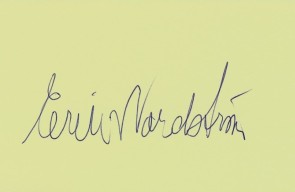 Erik Nordström